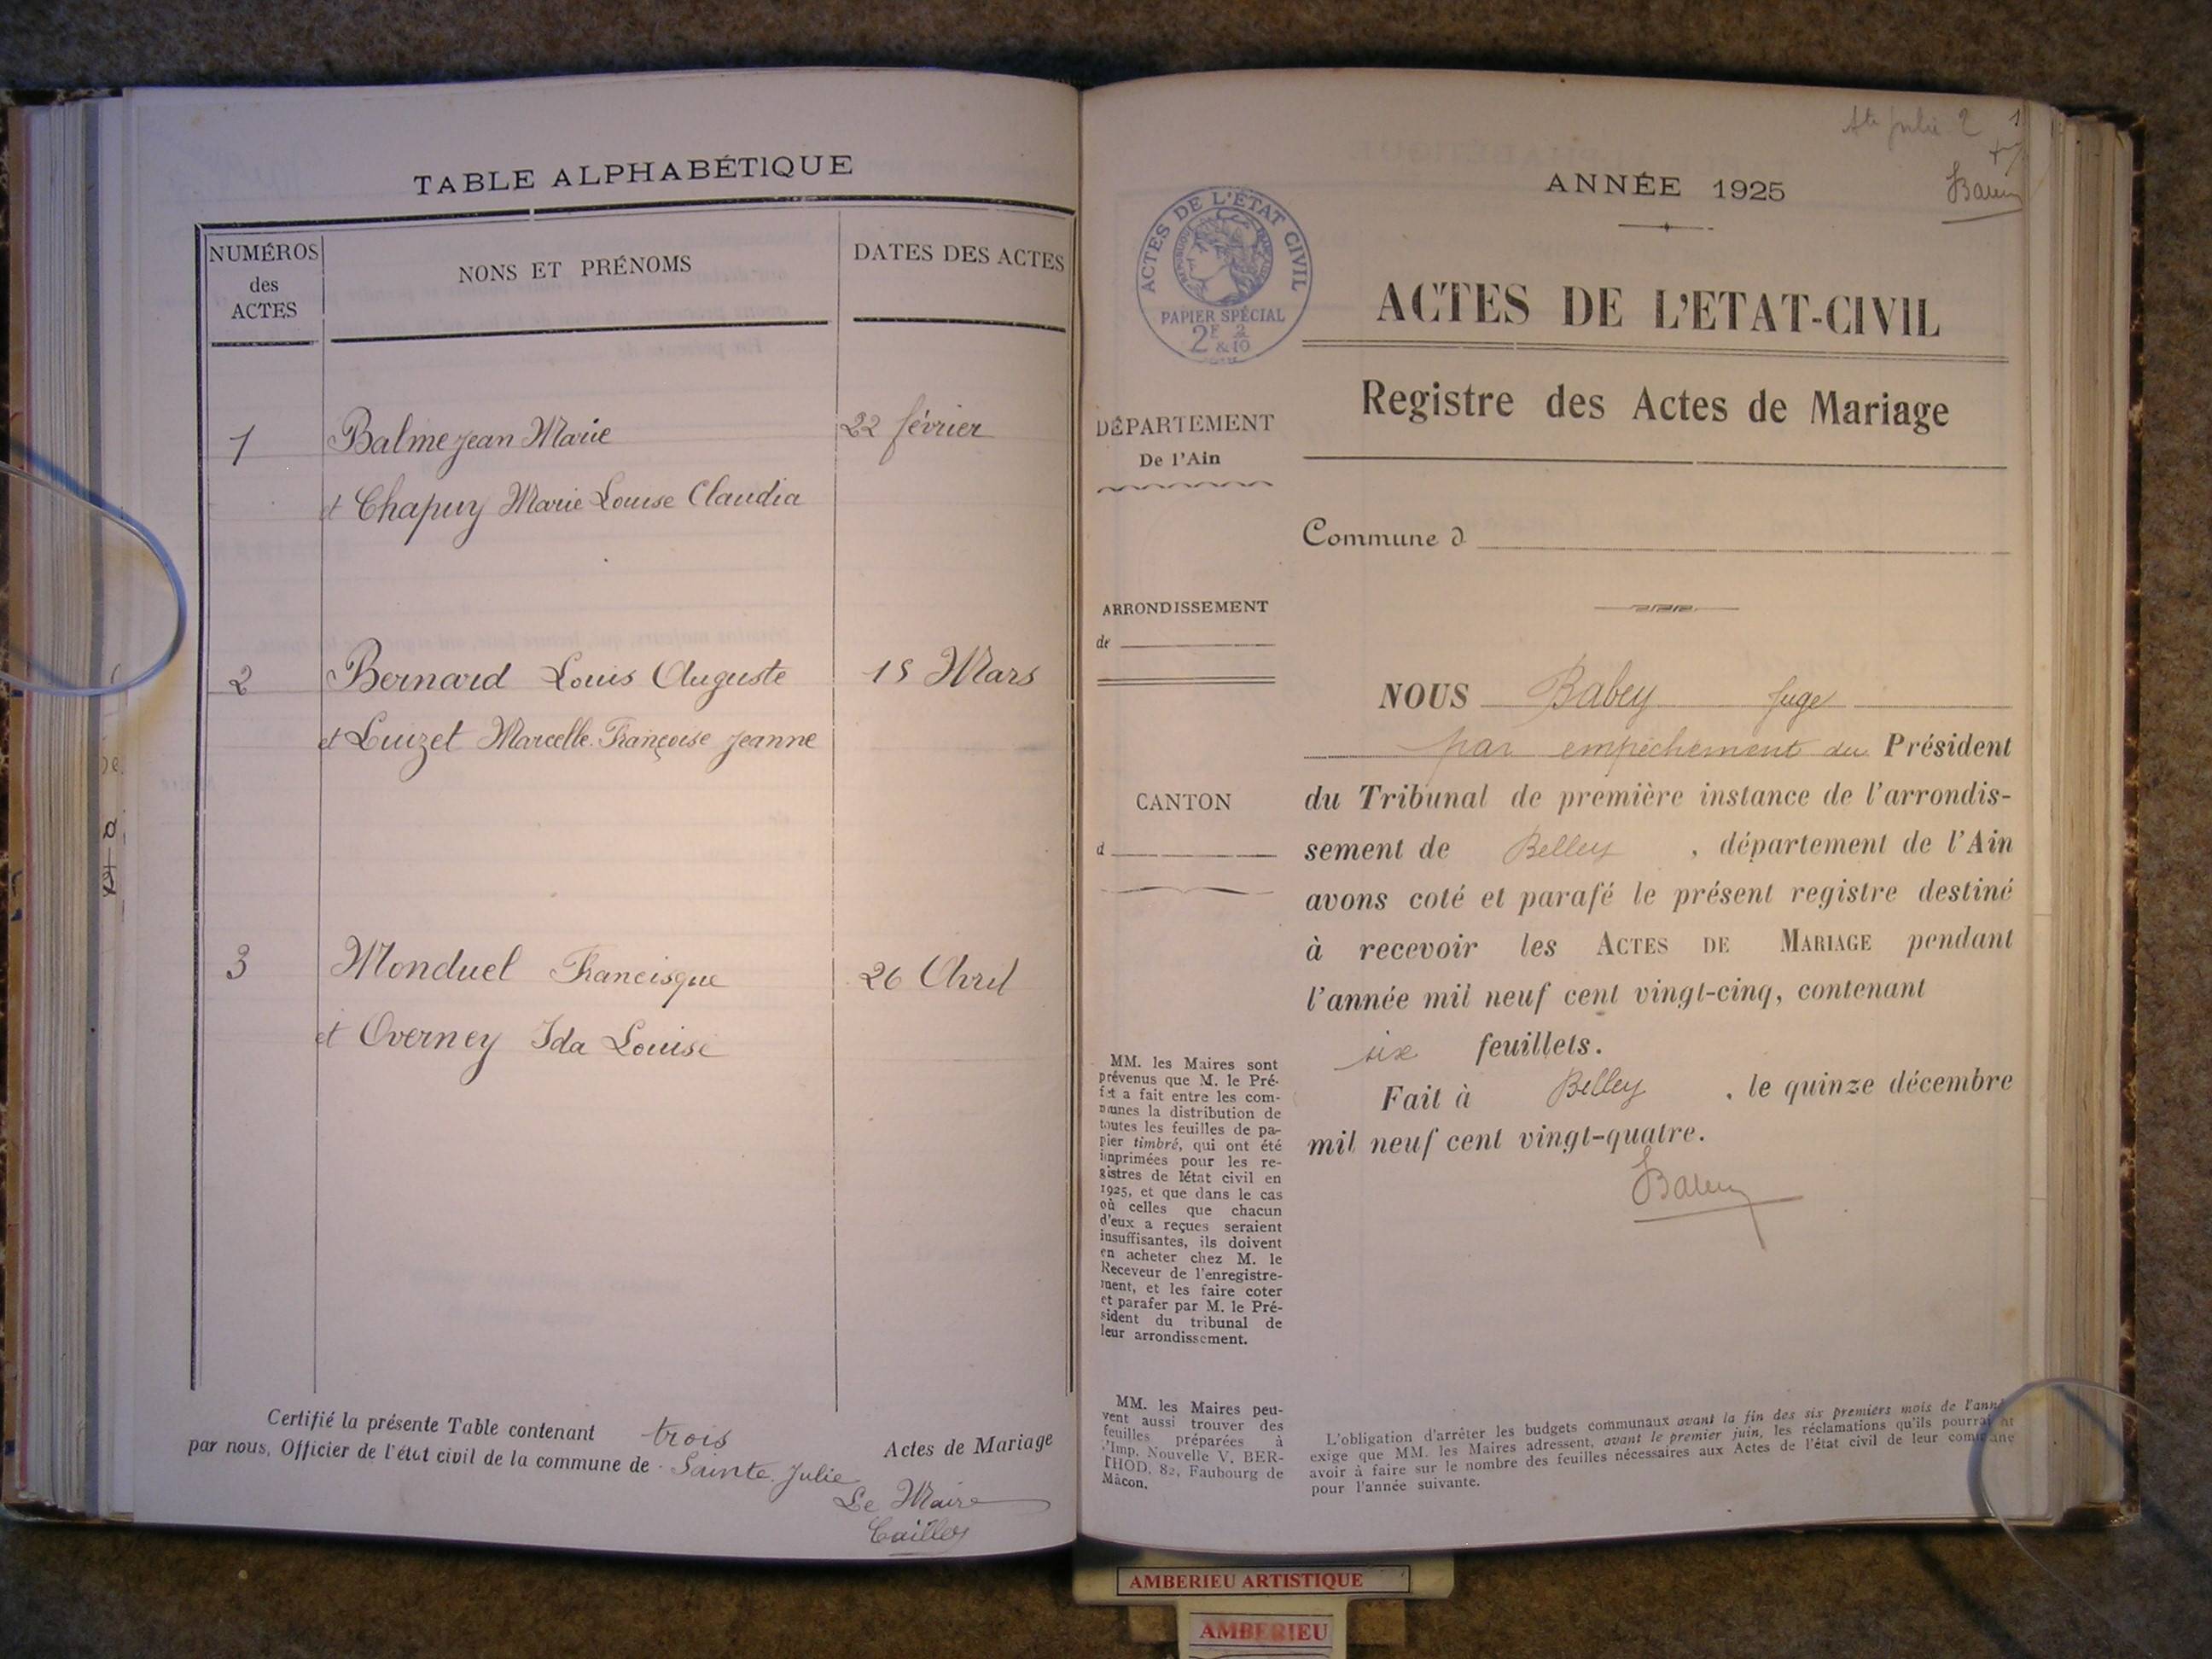 TABLE ALPHABÉTIQUE
NUMÉROS
des
ACTES
NONS ET PRÉNOMS
DATES DES ACTES
1
Balme Jean Marie
22 février
et Chapuy Marie Louise Claudia
2
Bernard Louis Auguste
15 Mars
et Luizet Marcelle Françoise Jeanne
3
Monduel Francisque
26 Avril
et Overney Ida Louise
Certifié la présente Table contenant trois Actes de Mariage
par nous, Officier de l'état civil de la commune de Sainte Julie
Le Maire
Ste Julie 2
1
ANNÉE 1925
ACTES DE L'ÉTAT CIVIL
RÉPUBLIQUE FRANÇAISE
PAPIER SPÉCIAL
2F 2
& 10
ACTES DE L'ETAT-CIVIL
Registre des Actes de Mariage
DÉPARTEMENT
De l'Ain
Commune d
ARRONDISSEMENT
de
CANTON
d
NOUS Babey Juge
par empêchement du Président
du Tribunal de première instance de l'arrondis-
sement de Belley, département de l'Ain
avons coté et parafé le présent registre destiné
à recevoir les ACTES DE MARIAGE pendant
l'année mil neuf cent vingt-cinq, contenant
six feuillets.
Fait à Belley, le quinze décembre
mil neuf cent vingt-quatre.
Babey
MM. les Maires sont
prévenus que M. le Pré-
fet a fait entre les com-
munes la distribution de
toutes les feuilles de pa-
pier timbré, qui ont été
imprimées pour les re-
gistres de létat civil en
1925, et que dans le cas
où celles que chacun
d'eux a reçues seraient
insuffisantes, ils doivent
en acheter chez M. le
Receveur de l'enregistre-
ment, et les faire coter
et parafer par M. le Pré-
sident du tribunal de
leur arrondissement.
MM. les Maires peu-
vent aussi trouver des
feuilles préparées à
l'Imp. Nouvelle V. BER-
THOD, 82, Faubourg de
Mâcon.
L'obligation d'arrêter les budgets communaux avant la fin des six premiers mois de l'année
exige que MM. les Maires adressent, avant le premier juin, les réclamations qu'ils pourraient
avoir à faire sur le nombre des feuilles nécessaires aux Actes de l'état civil de leur commune
pour l'année suivante.
AMBERIEU ARTISTIQUE
AMBERIEU